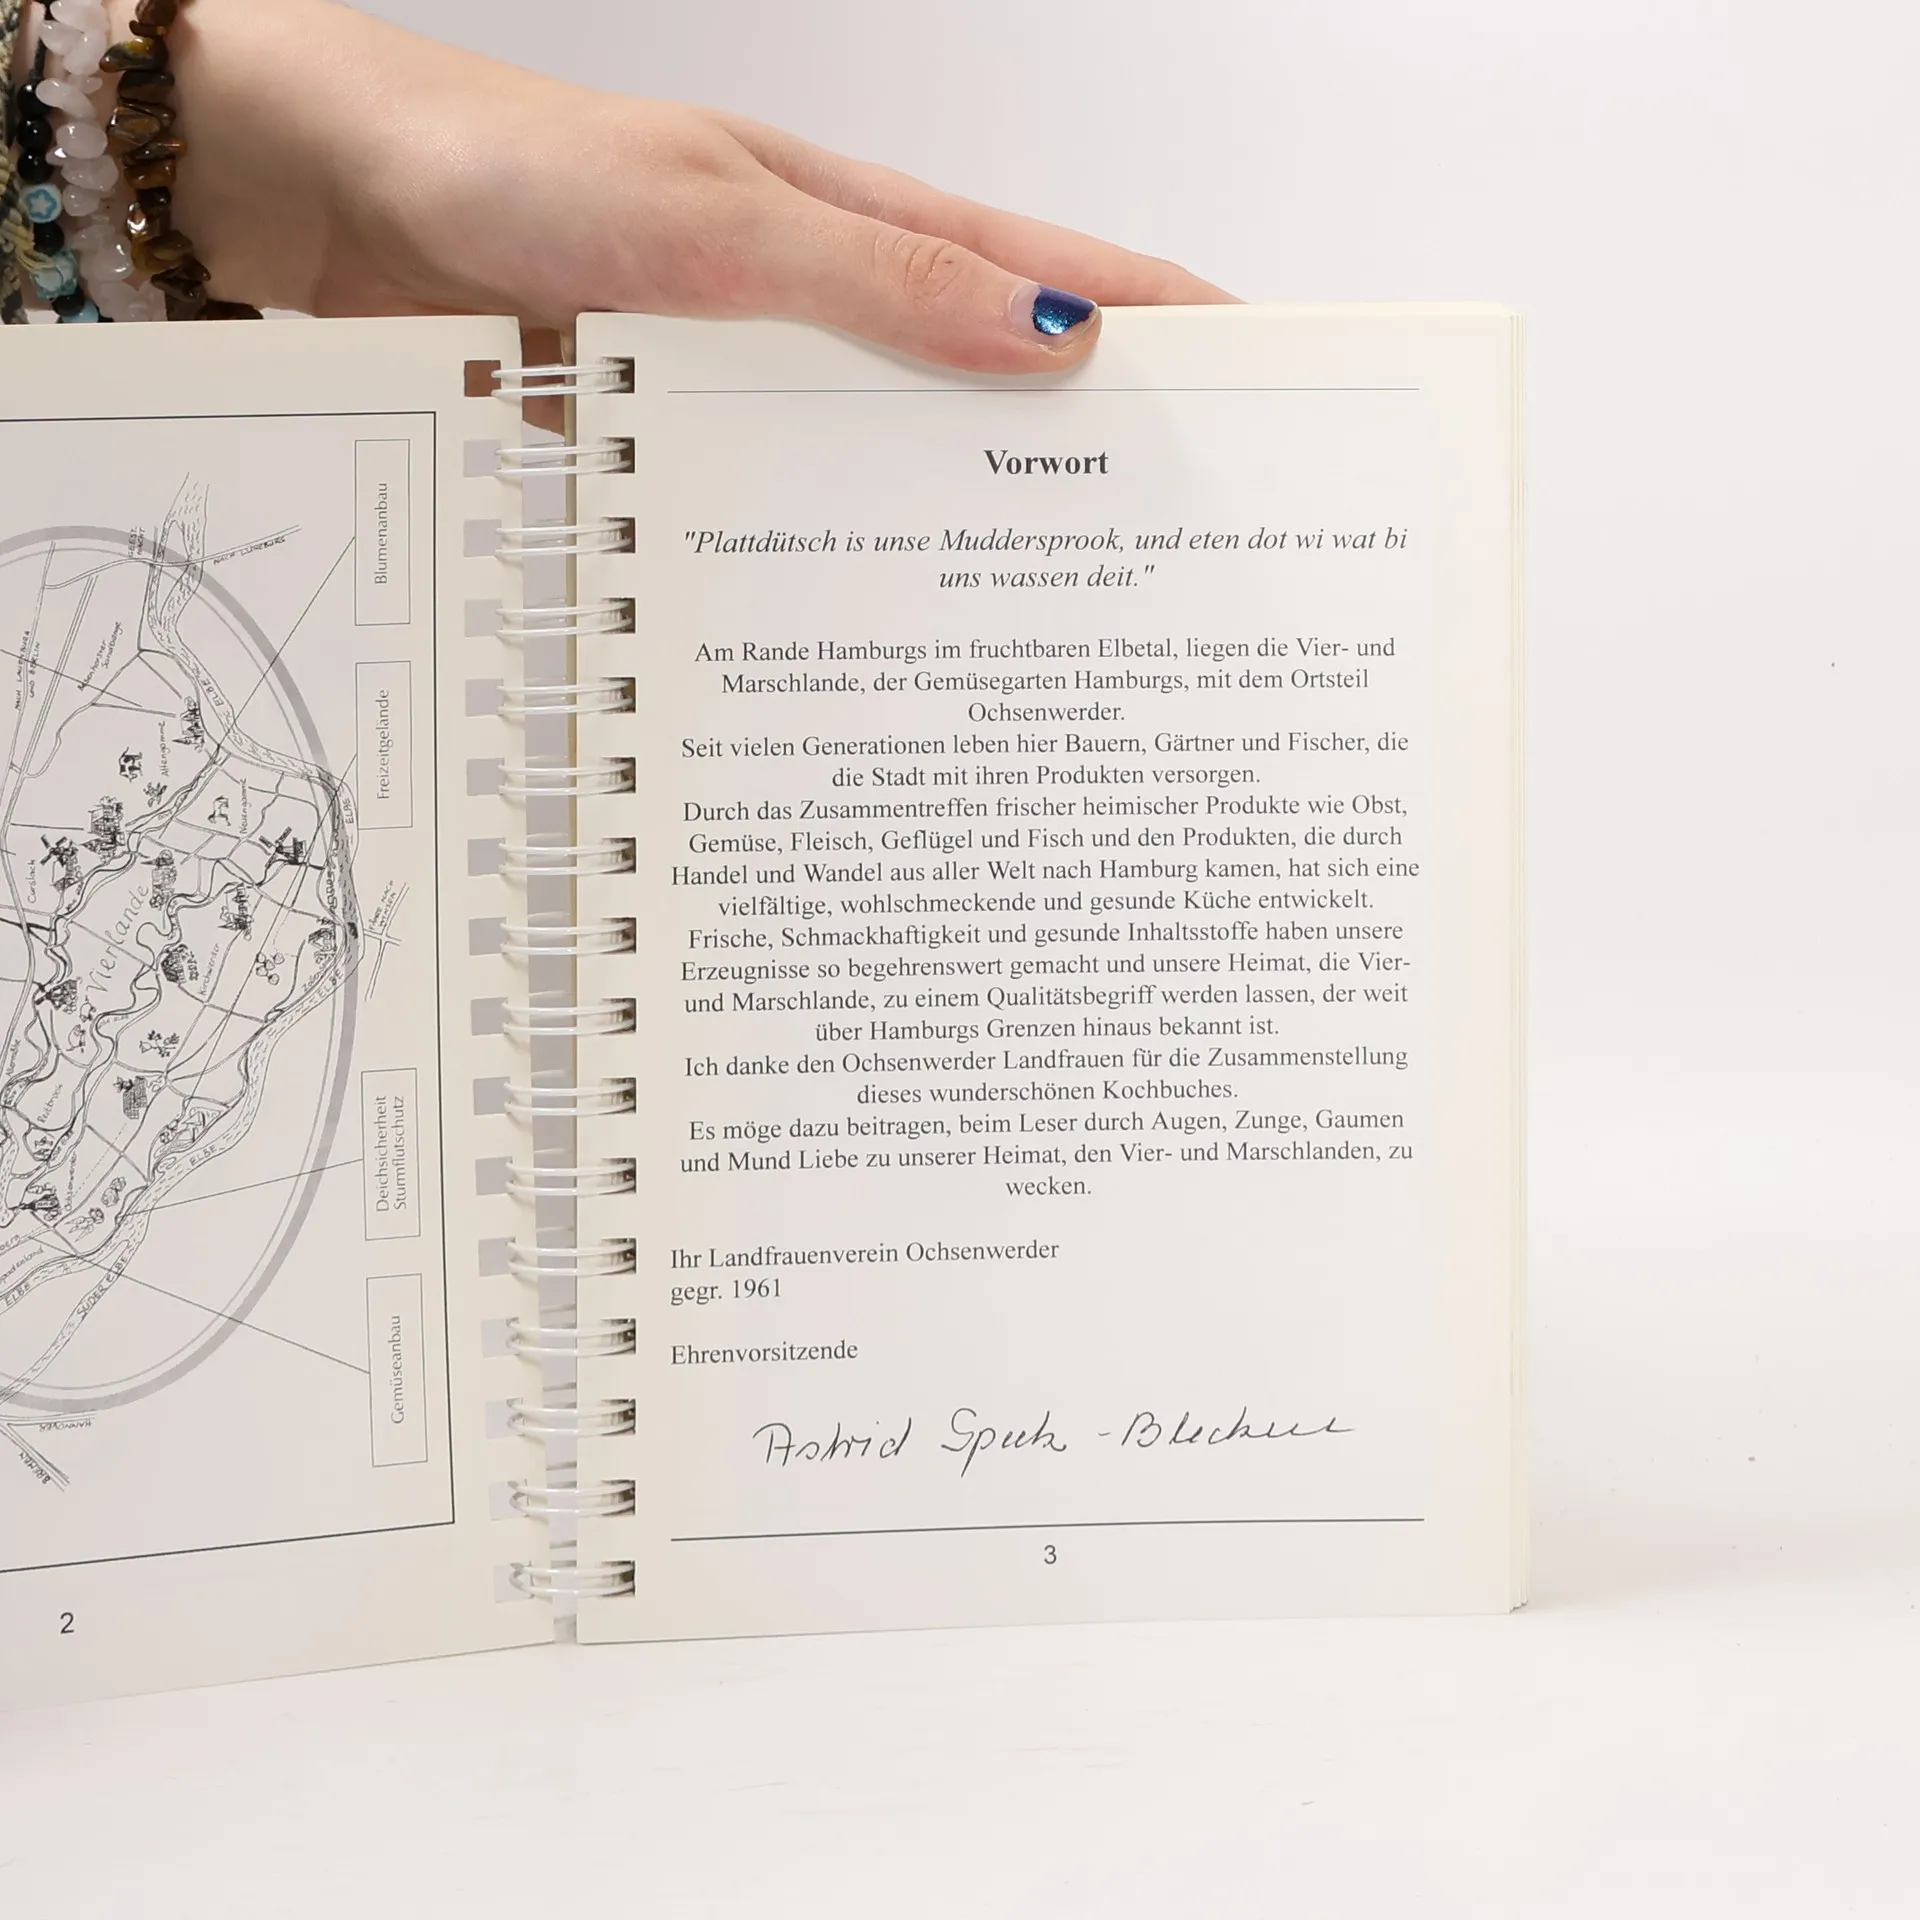 Blumenanbau
Freizeitgelände
Deichsicherheit
Sturmflutschutz
Gemüseanbau
NACH LÜNEBURG
NACH LAUENBURG
UND BERLIN
ELBE
Altengamme
Neuengamme
ELBE
Curslack
Vierlande
Kirchwerder
ELBE
ELBE
ELBE
SÜDER ELBE
HANNOVER
BREMEN
2
Vorwort
"Plattdütsch is unse Muddersprook, und eten dot wi wat bi
uns wassen deit."
Am Rande Hamburgs im fruchtbaren Elbetal, liegen die Vier- und
Marschlande, der Gemüsegarten Hamburgs, mit dem Ortsteil
Ochsenwerder.
Seit vielen Generationen leben hier Bauern, Gärtner und Fischer, die
die Stadt mit ihren Produkten versorgen.
Durch das Zusammentreffen frischer heimischer Produkte wie Obst,
Gemüse, Fleisch, Geflügel und Fisch und den Produkten, die durch
Handel und Wandel aus aller Welt nach Hamburg kamen, hat sich eine
vielfältige, wohlschmeckende und gesunde Küche entwickelt.
Frische, Schmackhaftigkeit und gesunde Inhaltsstoffe haben unsere
Erzeugnisse so begehrenswert gemacht und unsere Heimat, die Vier-
und Marschlande, zu einem Qualitätsbegriff werden lassen, der weit
über Hamburgs Grenzen hinaus bekannt ist.
Ich danke den Ochsenwerder Landfrauen für die Zusammenstellung
dieses wunderschönen Kochbuches.
Es möge dazu beitragen, beim Leser durch Augen, Zunge, Gaumen
und Mund Liebe zu unserer Heimat, den Vier- und Marschlanden, zu
wecken.
Ihr Landfrauenverein Ochsenwerder
gegr. 1961
Ehrenvorsitzende
Astrid Speck - Blecken
3